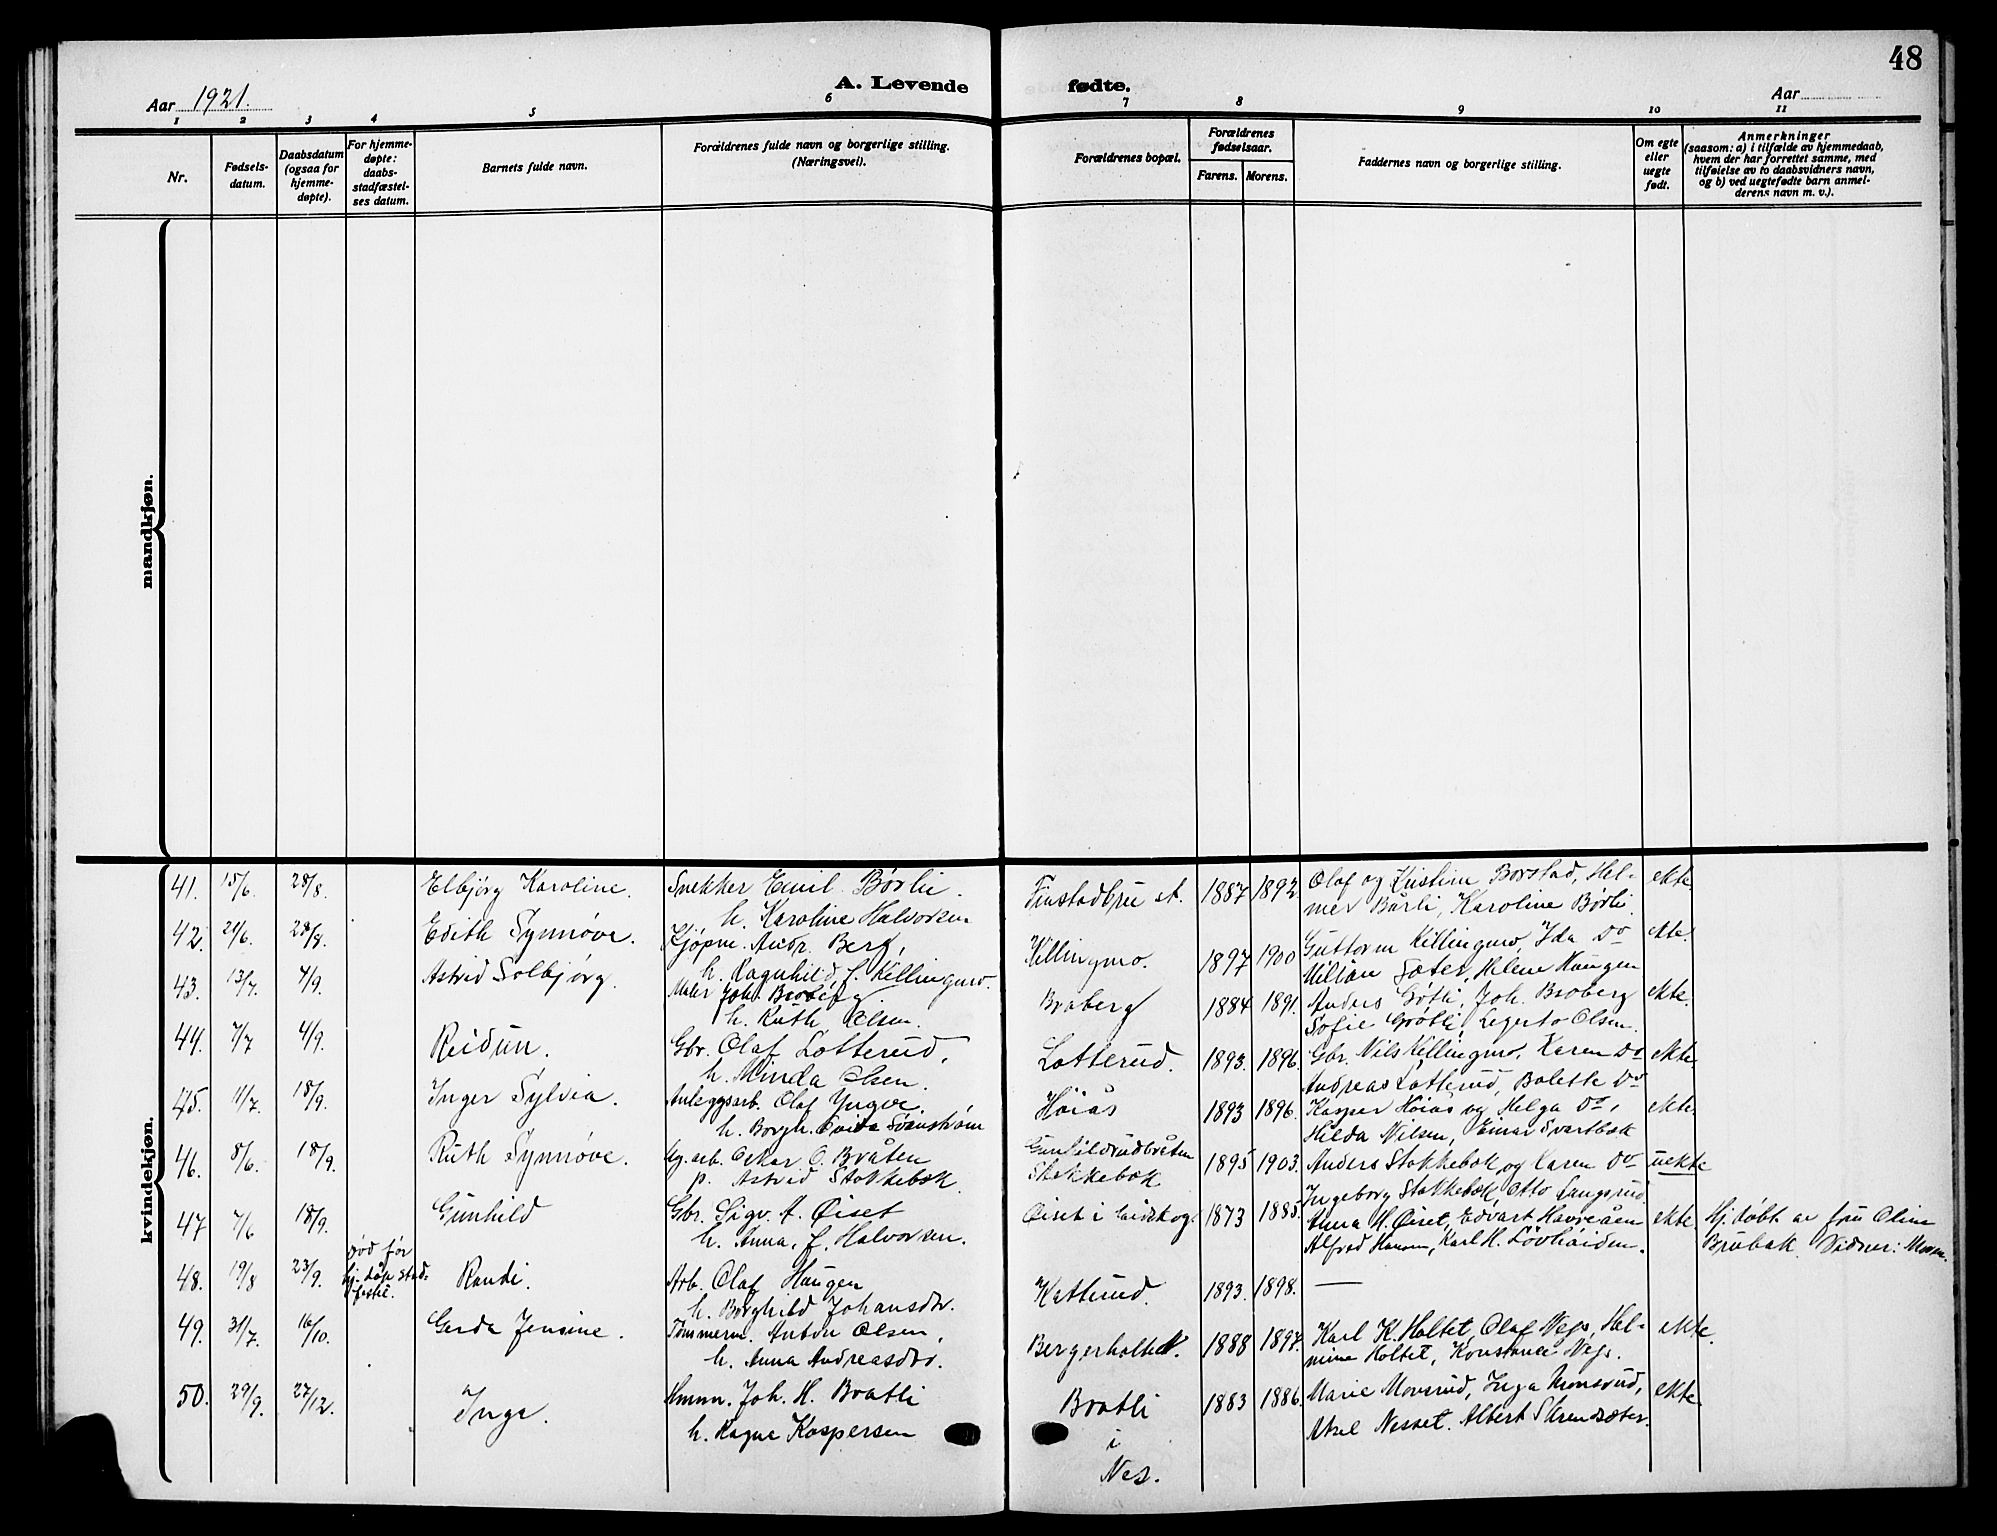 48
A. Levende fødte.
Aar 1921.
Aar
1 2 3 4 5 6 7 8 9 10 11
Nr.
Fødsels-
datum.
Daabsdatum
(ogsaa for
hjemme-
døpte).
For hjemme-
døpte:
daabs-
stadfæstel-
ses datum.
Barnets fulde navn.
Forældrenes fulde navn og borgerlige stilling.
(Næringsvei).
Forældrenes bopæl.
Forældrenes
fødselsaar.
Farens. Morens.
Faddernes navn og borgerlige stilling.
Om egte
eller
uegte
født.
Anmerkninger
(saasom: a) i tilfælde av hjemmedaab,
hvem der har forrettet samme, med
tilføielse av to daabsvidners navn,
og b) ved uegtefødte barn anmel-
derens navn m. v.).
mandkjøn.
kvindekjøn.
41. 15/6. 28/8. Elbjörg Karoline. Snekker Emil Børli. Finstadbru st. 1887 1892 Olaf og Kristine Borstad, Hel- ekte
h. Karoline Halvorsen mer Bårli, Karoline Børli.
42. 21/6. 28/8. Edith Synnøve. Kjøpm. Andr. Berg, Killingmo. 1897 1900 Guttorm Killingmo, Ida Do ekte.
h. Ragnhild f. Killingmo. Sæter, Helene Haugen
43. 13/7. 4/9. Astrid Solbjørg. Maler Joh. Broberg. Broberg 1884 1891. Anders Grøtli, Joh. Broberg ekte.
h. Ruth Olsen. Sofie Grøtli, Olsen.
44. 7/7 4/9. Reidun. Gbr. Olaf Lotterud, Lotterud. 1893. 1896. Gbr. Nils Killingmo, Karen Do ekte.
h. Minda Olsen. Andreas Lotterud, Bolette Do
45. 11/7. 18/9. Inger Sylvia. Anleggsarb. Olaf Yngve. Höiås 1893 1896. Kasper Höiås og Helga Do, ekte.
h. Borgh. Svenström Hilda Nilsen, Einar Svartbæk
46. 8/6. 18/9. Ruth Synnøve. arb. Oskar O. Bråten Gunhildrudbråten 1895 1903. Anders Stokkebæk og Karen Do uekte
p. Astrid Stokkebæk. Stokkebæk Ingeborg Stokkebæk, Otto Langsrud.
47 7/6 18/9. Gunhild Gbr. Sigv. A. Öiset Öiset i Eidskog 1873 1885. Anna H. Öiset, Edvart Havreåen ekte. Hj. döbt av fru Oline
h. Anna, f. Halvorsen. Alfred Hansen, Karl H. Lövhöiden. Brubak. Vidner: Moren.
48. 19/8 23/9. død før
hj. dåp stad-
festet. Randi. Arb. Olaf Haugen Katterud. 1893. 1898. —
h. Borghild Johansdtr.
49. 31/7. 16/10. Gerda Jensine. Tömmerm. Anton Olsen, Bergerholtet. 1888 1897. Karl K. Holtet, Olaf Næs, Hel- ekte.
h. Anna Andreasdtr. mine Holtet, Konstance Næs.
50. 29/9. 27/12. Inger. Hmnn. Joh. H. Bratli Bratli 1883 1886. Marie Monsrud, Inga Monsrud, ekte
h. Ragna Kaspersen Aksel Nesset. Albert
i
Nes.